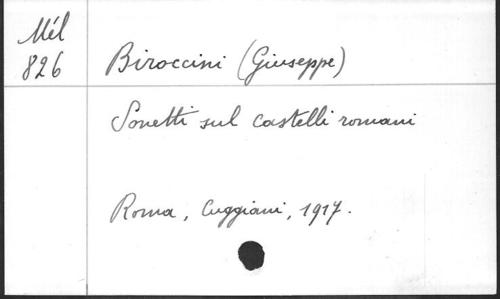 Mél
826
Biroccini (Giuseppe)
Sonetti sul castelli romani
Roma, Cuggiani, 1917.